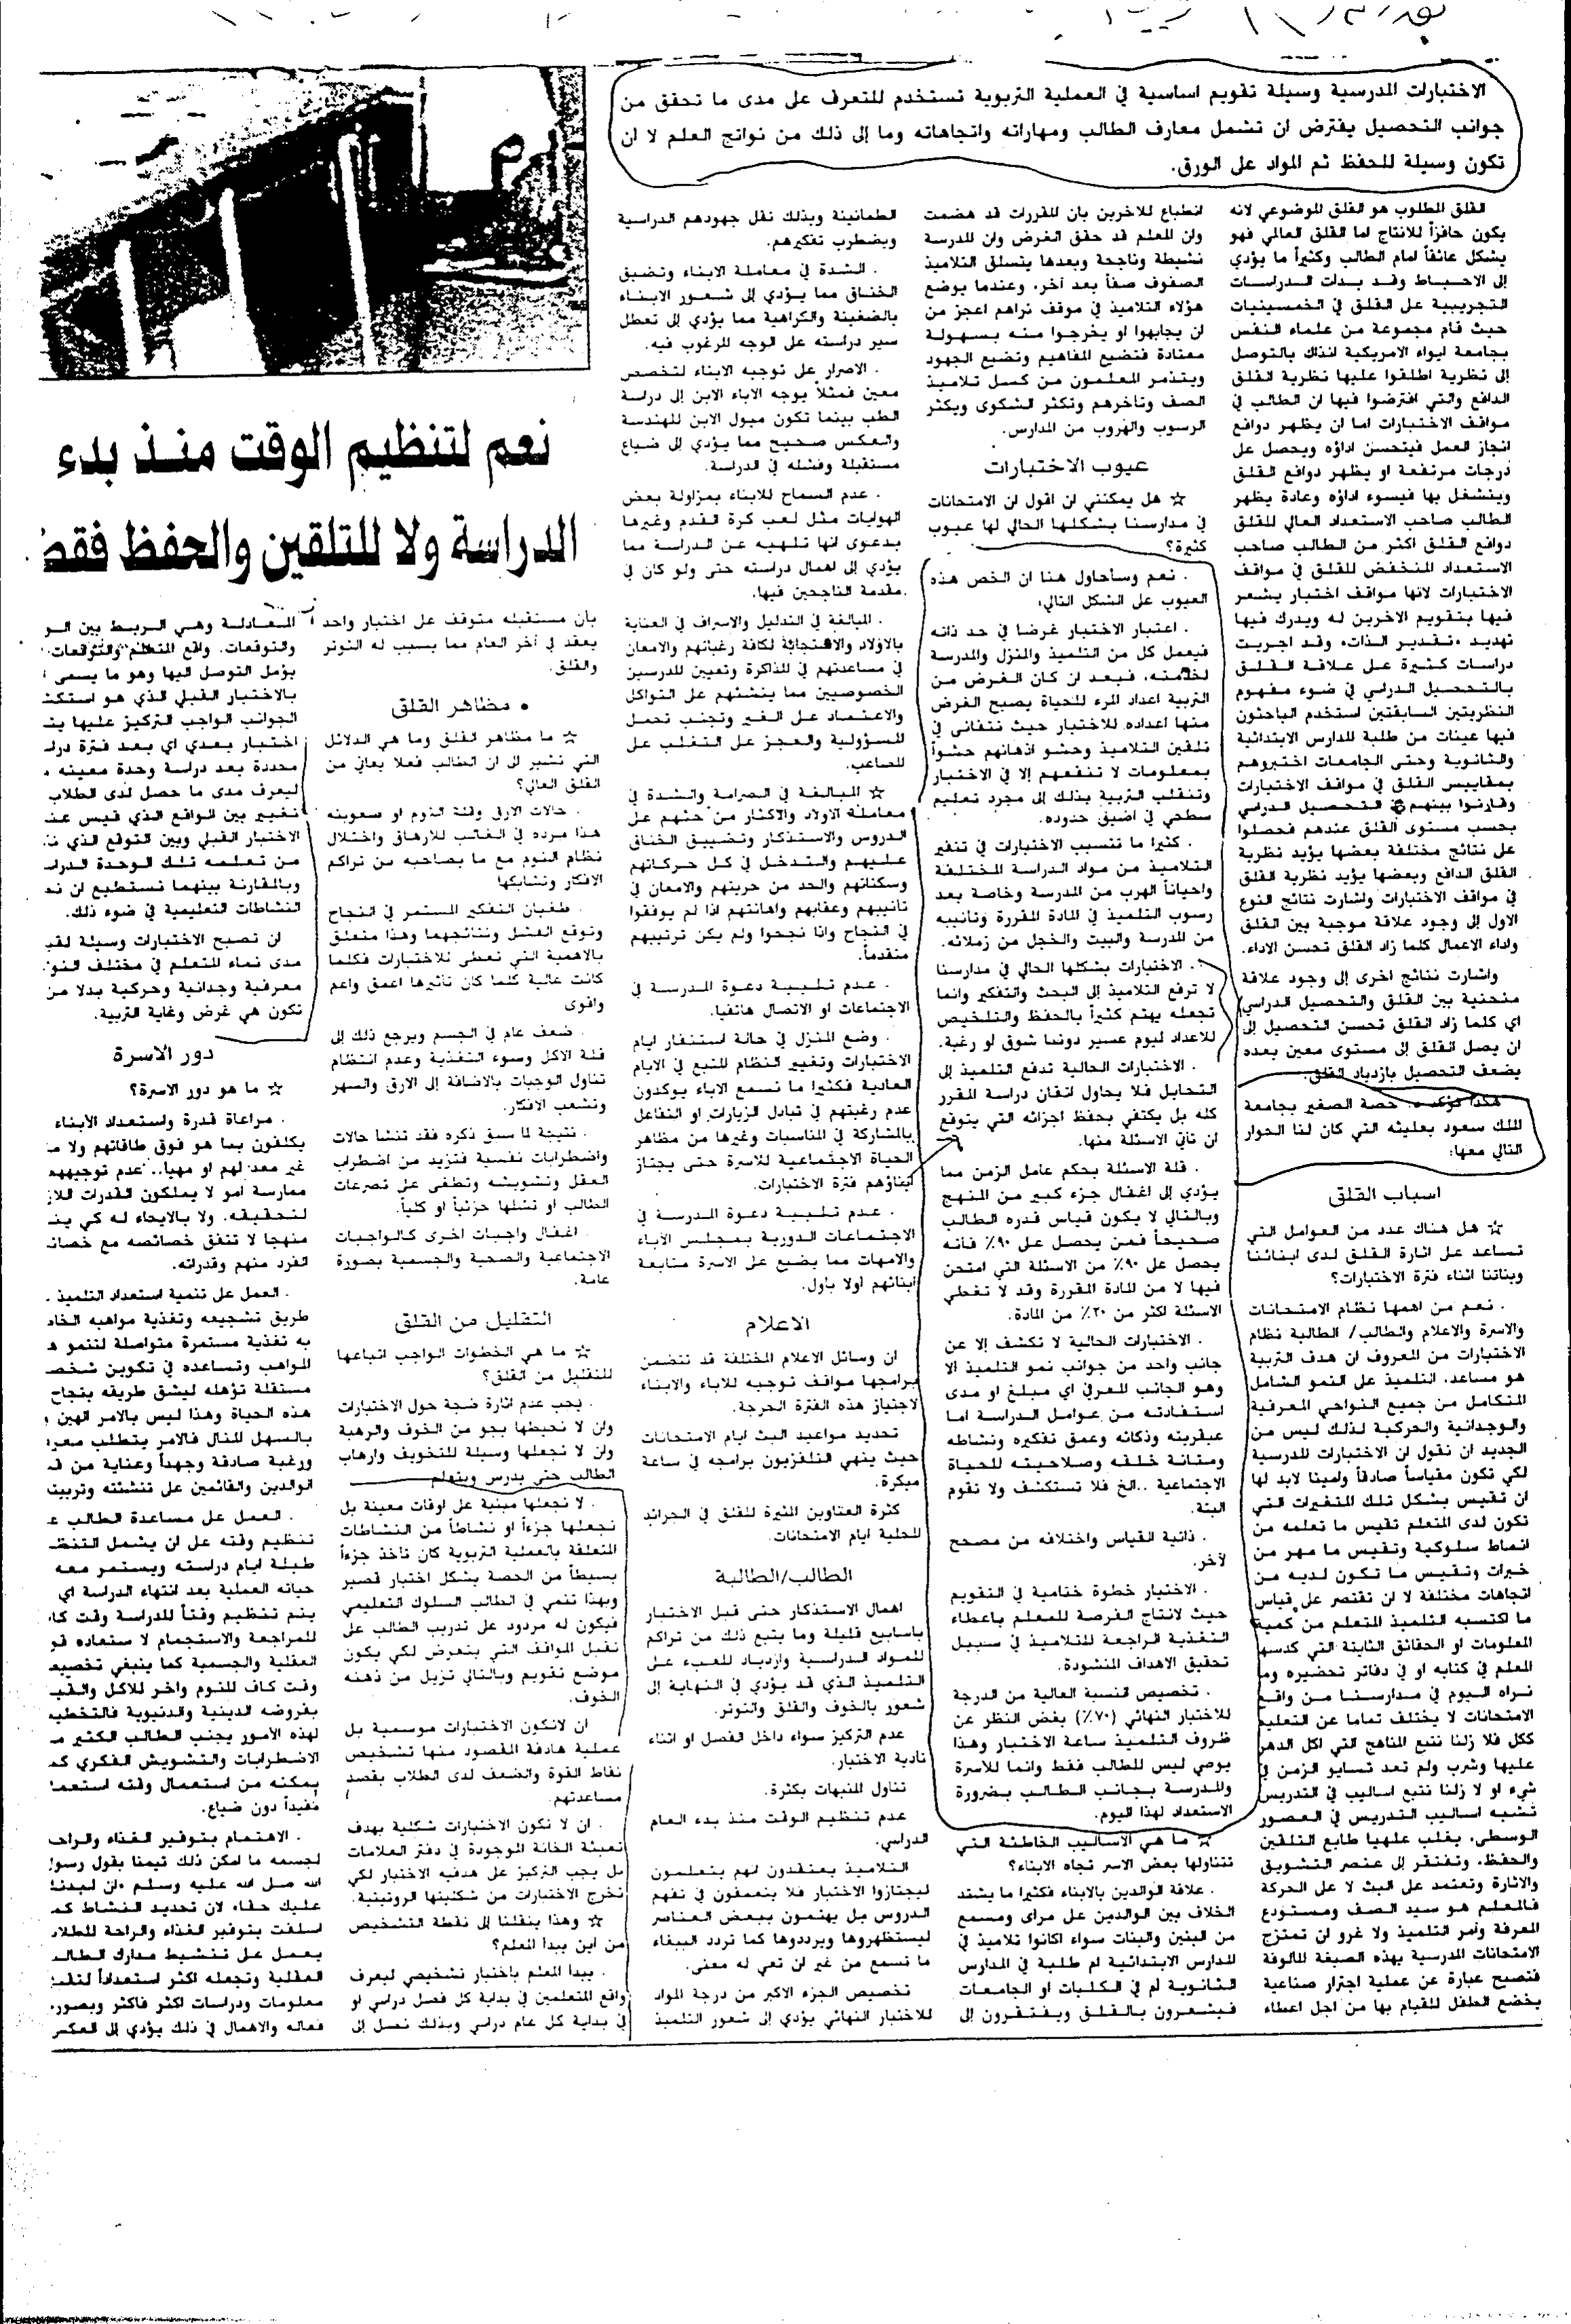 الاختبارات المدرسية وسيلة تقويم اساسية في العملية التربوية تستخدم للتعرف على مدى ما تحقق من
جوانب التحصيل يفترض ان تشمل معارف الطالب ومهاراته واتجاهاته وما إلى ذلك من نواتج العلم لا ان
تكون وسيلة للحفظ ثم المواد على الورق.
نعم لتنظيم الوقت منذ بدء
الدراسة ولا للتلقين والحفظ فقط
القلق المطلوب هو القلق الموضوعي لانه
يكون حافزاً للانتاج اما القلق العالي فهو
يشكل عائقاً امام الطالب وكثيراً ما يؤدي
إلى الاحباط وقد بدأت الدراسات
التجريبية على القلق في الخمسينيات
حيث قام مجموعة من علماء النفس
بجامعة ايواء الامريكية انذاك بالتوصل
إلى نظرية اطلقوا عليها نظرية القلق
الدافع والتي افترضوا فيها ان الطالب في
مواقف الاختبارات اما ان يظهر دوافع
انجاز العمل فيتحسن اداؤه ويحصل على
درجات مرتفعة او يظهر دوافع القلق
وينشغل بها فيسوء اداؤه وعادة يظهر
الطالب صاحب الاستعداد العالي للقلق
دوافع القلق اكثر من الطالب صاحب
الاستعداد المنخفض للقلق في مواقف
الاختبارات لانها مواقف اختبار يشعر
فيها بتقويم الاخرين له ويدرك فيها
تهديد «تقدير الذات» وقد اجريت
دراسات كثيرة على علاقة القلق
بالتحصيل الدراسي في ضوء مفهوم
النظريتين السابقتين استخدم الباحثون
فيها عينات من طلبة المدارس الابتدائية
والثانوية وحتى الجامعات اختبروهم
بمقاييس القلق في مواقف الاختبارات
وقارنوا بينهم في التحصيل الدراسي
بحسب مستوى القلق عندهم فحصلوا
على نتائج مختلفة بعضها يؤيد نظرية
القلق الدافع وبعضها يؤيد نظرية القلق
في مواقف الاختبارات واشارت نتائج النوع
الاول إلى وجود علاقة موجبة بين القلق
واداء الاعمال كلما زاد القلق تحسن الاداء.
واشارت نتائج اخرى إلى وجود علاقة
منحنية بين القلق والتحصيل الدراسي
اي كلما زاد القلق تحسن التحصيل إلى
ان يصل القلق إلى مستوى معين بعده
يضعف التحصيل بازدياد القلق.
هكذا تؤكد د. حصة الصغير بجامعة
الملك سعود بعليشه التي كان لنا الحوار
التالي معها:
اسباب القلق
☆ هل هناك عدد من العوامل التي
تساعد على اثارة القلق لدى ابنائنا
وبناتنا اثناء فترة الاختبارات؟
. نعم من اهمها نظام الامتحانات
والاسرة والاعلام والطالب/ الطالبة نظام
الاختبارات من المعروف ان هدف التربية
هو مساعد. التلميذ على النمو الشامل
المتكامل من جميع النواحي المعرفية
والوجدانية والحركية لذلك ليس من
الجديد ان نقول ان الاختبارات المدرسية
لكي تكون مقياساً صادقاً وامينا لابد لها
ان تقيس بشكل تلك المتغيرات التي
تكون لدى المتعلم تقيس ما تعلمه من
انماط سلوكية وتقيس ما مهر من
خبرات وتقيس ما تكون لديه من
اتجاهات مختلفة لا ان تقتصر على قياس
ما اكتسبه التلميذ المتعلم من كمية
المعلومات او الحقائق الثابتة التي كدسها
المعلم في كتابه او في دفاتر تحضيره وما
نراه اليوم في مدارسنا من واقع
الامتحانات لا يختلف تماما عن التعليم
ككل فلا زلنا نتبع المناهج التي اكل الدهر
عليها وشرب ولم تعد تساير الزمن في
شيء او لا زلنا نتبع اساليب في التدريس
تشبه اساليب التدريس في العصور
الوسطى. يغلب علهيا طابع التلقين
والحفظ. وتفتقر إلى عنصر التشويق
والاثارة وتعتمد على البث لا على الحركة
فالمعلم هو سيد الصف ومستودع
المعرفة وأمر التلميذ ولا غرو ان تمتزج
الامتحانات المدرسية بهذه الصبغة المألوفة
فتصبح عبارة عن عملية اجترار صناعية
يخضع الطفل للقيام بها من اجل اعطاء
انطباع للاخرين بان المقررات قد هضمت
وان المعلم قد حقق الغرض وان المدرسة
نشيطة وناجحة وبعدها يتسلق التلاميذ
الصفوف صفاً بعد آخر. وعندما يوضع
هؤلاء التلاميذ في موقف نراهم اعجز من
ان يجابهوا او يخرجوا منه بسهولة
معتادة فتضيع المفاهيم وتضيع الجهود
ويتذمر المعلمون من كسل تلاميذ
الصف وتأخرهم وتكثر الشكوى ويكثر
الرسوب والهروب من المدارس.
عيوب الاختبارات
☆ هل يمكنني ان اقول ان الامتحانات
في مدارسنا بشكلها الحالي لها عيوب
كثيرة؟
. نعم وسأحاول هنا ان الخص هذه
العيوب على الشكل التالي:
. اعتبار الاختبار غرضا في حد ذاته
فيعمل كل من التلميذ والمنزل والمدرسة
لخدمته. فبعد ان كان الغرض من
التربية اعداد المرء للحياة يصبح الغرض
منها اعداده للاختبار حيث نتفانى في
تلقين التلاميذ وحشو اذهانهم حشواً
بمعلومات لا تنفعهم إلا في الاختبار
وتنقلب التربية بذلك إلى مجرد تعليم
سطحي في اضيق حدوده.
. كثيرا ما تتسبب الاختبارات في تنفير
التلاميذ من مواد الدراسة المختلفة
واحياناً الهرب من المدرسة وخاصة بعد
رسوب التلميذ في المادة المقررة وتأنيبه
من المدرسة والبيت والخجل من زملائه.
. الاختبارات بشكلها الحالي في مدارسنا
لا ترفع التلاميذ إلى البحث والتفكير وانما
تجعله يهتم كثيراً بالحفظ والتلخيص
للاعداد ليوم عسير دونما شوق او رغبة.
. الاختبارات الحالية تدفع التلميذ إلى
التحايل فلا يحاول اتقان دراسة المقرر
كله بل يكتفي بحفظ اجزائه التي يتوقع
ان تأتي الاسئلة منها.
. قلة الاسئلة بحكم عامل الزمن مما
يؤدي إلى اغفال جزء كبير من المنهج
وبالتالي لا يكون قياس قدره الطالب
صحيحاً فمن يحصل على ٩٠٪ فانه
يحصل على ٩٠٪ من الاسئلة التي امتحن
فيها لا من المادة المقررة وقد لا تغطي
الاسئلة اكثر من ٢٠٪ من المادة.
. الاختبارات الحالية لا تكشف إلا عن
جانب واحد من جوانب نمو التلميذ الا
وهو الجانب المعرفي اي مبلغ او مدى
استفادته من عوامل الدراسة اما
عبقريته وذكائه وعمق تفكيره ونشاطه
ومتانة خلقه وصلاحيته للحياة
الاجتماعية ..الخ فلا تستكشف ولا تقوم
البتة.
. ذاتية القياس واختلافه من مصحح
لآخر.
. الاختبار خطوة ختامية في التقويم
حيث لاتتاح الفرصة للمعلم باعطاء
التغذية الراجعة للتلاميذ في سبيل
تحقيق الاهداف المنشودة.
. تخصيص النسبة العالية من الدرجة
للاختبار النهائي (٧٠٪) بغض النظر عن
ظروف التلميذ ساعة الاختبار وهذا
يوصي ليس للطالب فقط وانما للأسرة
والمدرسة بجانب الطالب بضرورة
الاستعداد لهذا اليوم.
☆ ما هي الاساليب الخاطئة التي
تتناولها بعض الاسر تجاه الابناء؟
. علاقة الوالدين بالابناء فكثيرا ما يشتد
الخلاف بين الوالدين على مرأى ومسمع
من البنين والبنات سواء اكانوا تلاميذ في
المدارس الابتدائية ام طلبة في المدارس
الثانوية ام في الكليات او الجامعات
فيشعرون بالقلق ويفتقرون إلى
الطمأنينة وبذلك تقل جهودهم الدراسية
ويضطرب تفكيرهم.
. الشدة في معاملة الابناء وتضيق
الخناق مما يؤدي إلى شعور الابناء
بالضغينة والكراهية مما يؤدي إلى تعطل
سير دراسته على الوجه المرغوب فيه.
. الاصرار على توجيه الابناء لتخصص
معين فمثلاً يوجه الاباء الابن إلى دراسة
الطب بينما تكون ميول الابن للهندسة
والعكس صحيح مما يؤدي إلى ضياع
مستقبلة وفشله في الدراسة.
. عدم السماح للابناء بمزاولة بعض
الهوايات مثل لعب كرة القدم وغيرها
بدعوى انها تلهيه عن الدراسة مما
يؤدي إلى اهمال دراسته حتى ولو كان في
مقدمة الناجحين فيها.
. المبالغة في التدليل والاسراف في العناية
بالاولاد والاستجابة لكافة رغباتهم والامعان
في مساعدتهم في المذاكرة وتعيين المدرسين
الخصوصيين مما ينشئهم على التواكل
والاعتماد على الغير وتجنب تحمل
المسؤولية والعجز على التغلب على
المصاعب.
☆ المبالغة في الصرامة والشدة في
معاملة الاولاد والاكثار من حثهم على
الدروس والاستذكار وتضييق الخناق
عليهم والتدخل في كل حركاتهم
وسكناتهم والحد من حريتهم والامعان في
تأنيبهم وعقابهم واهانتهم اذا لم يوفقوا
في النجاح واذا نجحوا ولم يكن ترتيبهم
متقدماً.
. عدم تلبية دعوة المدرسة في
الاجتماعات او الاتصال هاتفيا.
. وضع المنزل في حالة استنفار ايام
الاختبارات وتغيير النظام المتبع في الايام
العادية فكثيرا ما نسمع الاباء يؤكدون
عدم رغبتهم في تبادل الزيارات او التفاعل
بالمشاركة في المناسبات وغيرها من مظاهر
الحياة الاجتماعية للاسرة حتى يجتاز
ابناؤهم فترة الاختبارات.
. عدم تلبية دعوة المدرسة في
الاجتماعات الدورية بمجلس الآباء
والامهات مما يضيع على الاسرة متابعة
ابنائهم اولا بأول.
الاعلام
ان وسائل الاعلام المختلفة قد تتضمن
برامجها مواقف توجيه للاباء والابناء
لاجتياز هذه الفترة الحرجة.
تحديد مواعيد البث ايام الامتحانات
حيث ينهي التلفزيون برامجه في ساعة
مبكرة.
كثرة العناوين المثيرة للقلق في الجرائد
المحلية ايام الامتحانات.
الطالب/الطالبة
اهمال الاستذكار حتى قبل الاختبار
بأسابيع قليلة وما يتبع ذلك من تراكم
للمواد الدراسية وازدياد للعبء على
التلميذ الذي قد يؤدي في النهاية إلى
شعور بالخوف والقلق والتوتر.
عدم التركيز سواء داخل الفصل او اثناء
تأدية الاختبار.
تناول المنبهات بكثرة.
عدم تنظيم الوقت منذ بدء العام
الدراسي.
التلاميذ يعتقدون انهم يتعلمون
ليجتازوا الاختبار فلا يتعمقون في تفهم
الدروس بل يهتمون ببعض العناصر
ليستظهروها ويرددوها كما تردد الببغاء
ما تسمع من غير ان تعي له معنى.
تخصيص الجزء الاكبر من درجة المواد
للاختبار النهائي يؤدي إلى شعور التلميذ
بأن مستقبله متوقف على اختبار واحد
يعقد في آخر العام مما يسبب له التوتر
والقلق.
• مظاهر القلق
☆ ما مظاهر القلق وما هي الدلائل
التي تشير الى ان الطالب فعلا يعاني من
القلق العالي؟
. حالات الارق وقلة النوم او صعوبته
هذا مرده في الغالب للارهاق واختلال
نظام النوم مع ما يصاحبه من تراكم
الافكار وتشابكها
. طغيان التفكير المستمر في النجاح
وتوقع الفشل ونتائجهما وهذا متعلق
بالاهمية التي تعطى للاختبارات فكلما
كانت عالية كلما كان تأثيرها اعمق واعم
واقوى
. ضعف عام في الجسم ويرجع ذلك إلى
قلة الاكل وسوء التغذية وعدم انتظام
تناول الوجبات بالاضافة إلى الارق والسهر
وتشعب الافكار.
. نتيجة لما سبق ذكره فقد تنشأ حالات
واضطرابات نفسية فتزيد من اضطراب
العقل وتشويشه وتطغى على تصرعات
الطالب او تشلها جزئياً او كلياً.
. اغفال واجبات اخرى كالواجبات
الاجتماعية والصحية والجسمية بصورة
عامة.
التقليل من القلق
☆ ما هي الخطوات الواجب اتباعها
للتقليل من القلق؟
. يجب عدم اثارة ضجة حول الاختبارات
وان لا نحيطها بجو من الخوف والرهبة
وان لا نجعلها وسيلة للتخويف وارهاب
الطالب حتى يدرس ويتعلم
. لا نجعلها مبنية على اوقات معينة بل
نجعلها جزءاً او نشاطاً من النشاطات
المتعلقة بالعملية التربوية كأن نأخذ جزءاً
بسيطاً من الحصة بشكل اختبار قصير
وبهذا ننمي في الطالب السلوك التعليمي
فيكون له مردود على تدريب الطالب على
تقبل المواقف التي يتعرض لكي يكون
موضع تقويم وبالتالي تزيل من ذهنه
الخوف.
ان لاتكون الاختبارات موسمية بل
عملية هادفة المقصود منها تشخيص
نقاط القوة والضعف لدى الطلاب بقصد
مساعدتهم.
. ان لا تكون الاختبارات شكلية بهدف
تعبئة الخانة الموجودة في دفتر العلامات
بل يجب التركيز على هدفيه الاختبار لكي
تخرج الاختبارات من شكليتها الروتينية.
☆ وهذا ينقلنا إلى نقطة التشخيص
من اين يبدأ المعلم؟
. يبدأ المعلم باختبار تشخيصي ليعرف
واقع المتعلمين في بداية كل فصل دراسي او
في بداية كل عام دراسي وبذلك نصل إلى
المعادلة وهي الربط بين الو
والتوقعات. واقع المتعلم والتوقعات
يؤمل التوصل اليها وهو ما يسمى
بالاختبار القبلي الذي هو استكث
الجوانب الواجب التركيز عليها يت
اختبار بعدي اي بعد فترة درا
محددة بعد دراسة وحدة معينة
ليعرف مدى ما حصل لدى الطلاب
تغيير بين الواقع الذي قيس عند
الاختبار القبلي وبين التوقع الذي
من تعلمه تلك الوحدة الدرا
وبالمقارنة بينهما نستطيع ان
النشاطات التعليمية في ضوء ذلك.
ان تصبح الاختبارات وسيلة لقيـ
مدى نماء المتعلم في مختلف النو
معرفية وجدانية وحركية بدلا من
تكون هي غرض وغاية التربية.
دور الاسرة
☆ ما هو دور الاسرة؟
. مراعاة قدرة واستعداد الأبناء
يكلفون بما هو فوق طاقاتهم ولا
غير معد لهم او مهيأ.. عدم توجيههم
ممارسة امو لا يملكون القدرات اللاز
لتحقيقه. ولا بالايحاء له كي
منهجا لا تتفق خصائصه مع خصائـ
الفرد منهم وقدراته.
. العمل على تنمية استعداد التلميذ
طريق تشجيعه وتغذية مواهبه الخاد
به تغذية مستمرة متواصلة لتنمو
المواهب وتساعده في تكوين شخصـ
مستقلة تؤهله ليشق طريقه بنجاح
هذه الحياة وهذا ليس بالامر الهين
بالسهل المنال فالامر يتطلب معر
ورغبة صادقة وجهداً وعناية من
الوالدين والقائمين على تنشئته وتربيتـ
. العمل على مساعدة الطالب
تنظيم وقته على ان يشمل التنظـ
طيلة ايام دراسته ويستمر معه
حياته العملية بعد انتهاء الدراسة اي
يتم تنظيم وقتاً للدراسة وقت كا
للمراجعة والاستجمام لا ستعاده قو
العقلية والجسمية كما ينبغي تخصيـ
وقت كاف للنوم واخر للاكل والقيـ
بفروضه الدينية والدنيوية فالتخطيـ
لهذه الأمور يجنب الطالب الكثير
الاضطرابات والتشويش الفكري كـ
يمكنه من استعمال وقته استعمـ
مفيداً دون ضياع.
. الاهتمام بتوفير الغذاء والراحـ
لجسمه ما امكن ذلك تيمنا بقول رسول
الله صلى الله عليه وسلم «ان لبدنك
عليك حقا» لان تجديد النشاط كـ
اسلفت بتوفير الغذاء والراحة للطلاب
يعمل على تنشيط مدارك الطالب
العقلية وتجعله اكثر استعداداً لتقبـ
معلومات ودراسات اكثر فاكثر وبصور
فعاله والاهمال في ذلك يؤدي إلى العكس